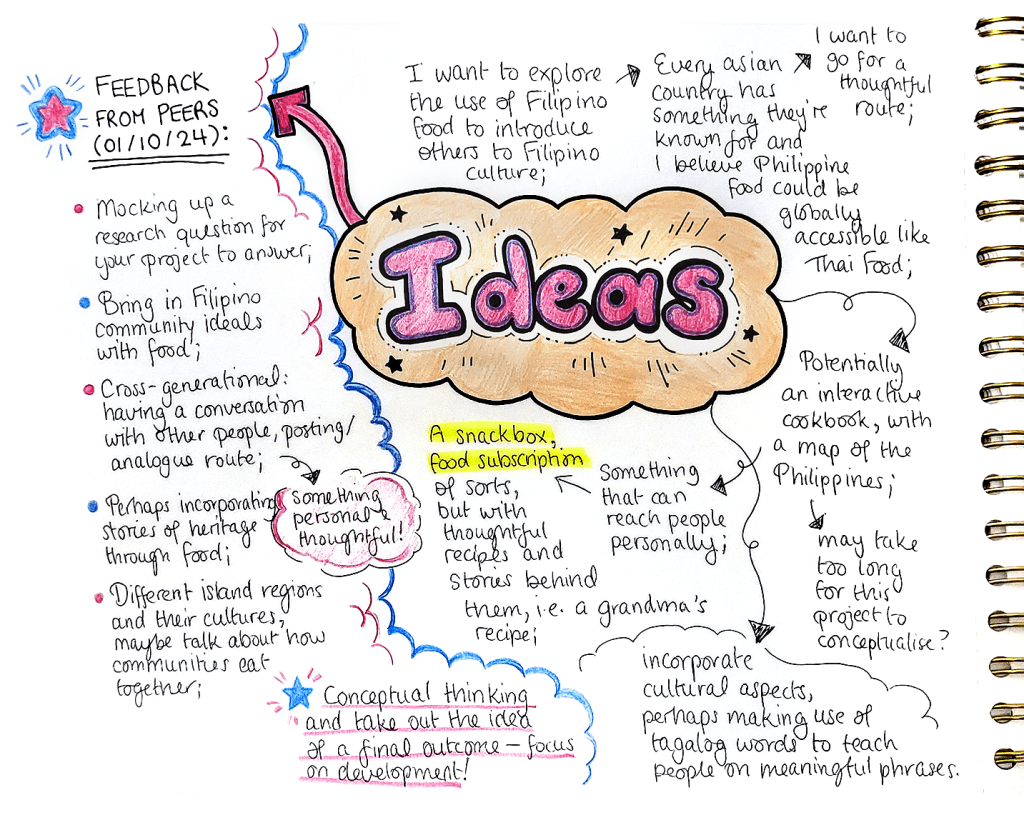 FEEDBACK
FROM PEERS
(01/10/24):
Mocking up a
research question for
your project to answer;
Bring in Filipino
community ideals
with food;
Cross-generational:
having a conversation
with other people, posting/
analogue route;
Something
personal &
thoughtful!
Perhaps incorporating
stories of heritage
through food;
Different island regions
and their cultures,
maybe talk about how
communities eat
together;
Conceptual thinking
and take out the idea
of a final outcome – focus
on development!
Ideas
I want to explore
the use of Filipino
food to introduce
others to Filipino
culture;
Every asian
country has
something they're
known for and
I believe Philippine
food could be
globally
accessible like
Thai Food;
I want to
go for a
thoughtful
route;
Potentially
an interactive
cookbook, with
a map of the
Philippines;
may take
too long
for this
project to
conceptualise?
Something
that can
reach people
personally;
A snackbox,
food subscription
of sorts,
but with
thoughtful
recipes and
stories behind
them, i.e. a grandma's
recipe;
incorporate
cultural aspects,
perhaps making use of
tagalog words to teach
people on meaningful phrases.